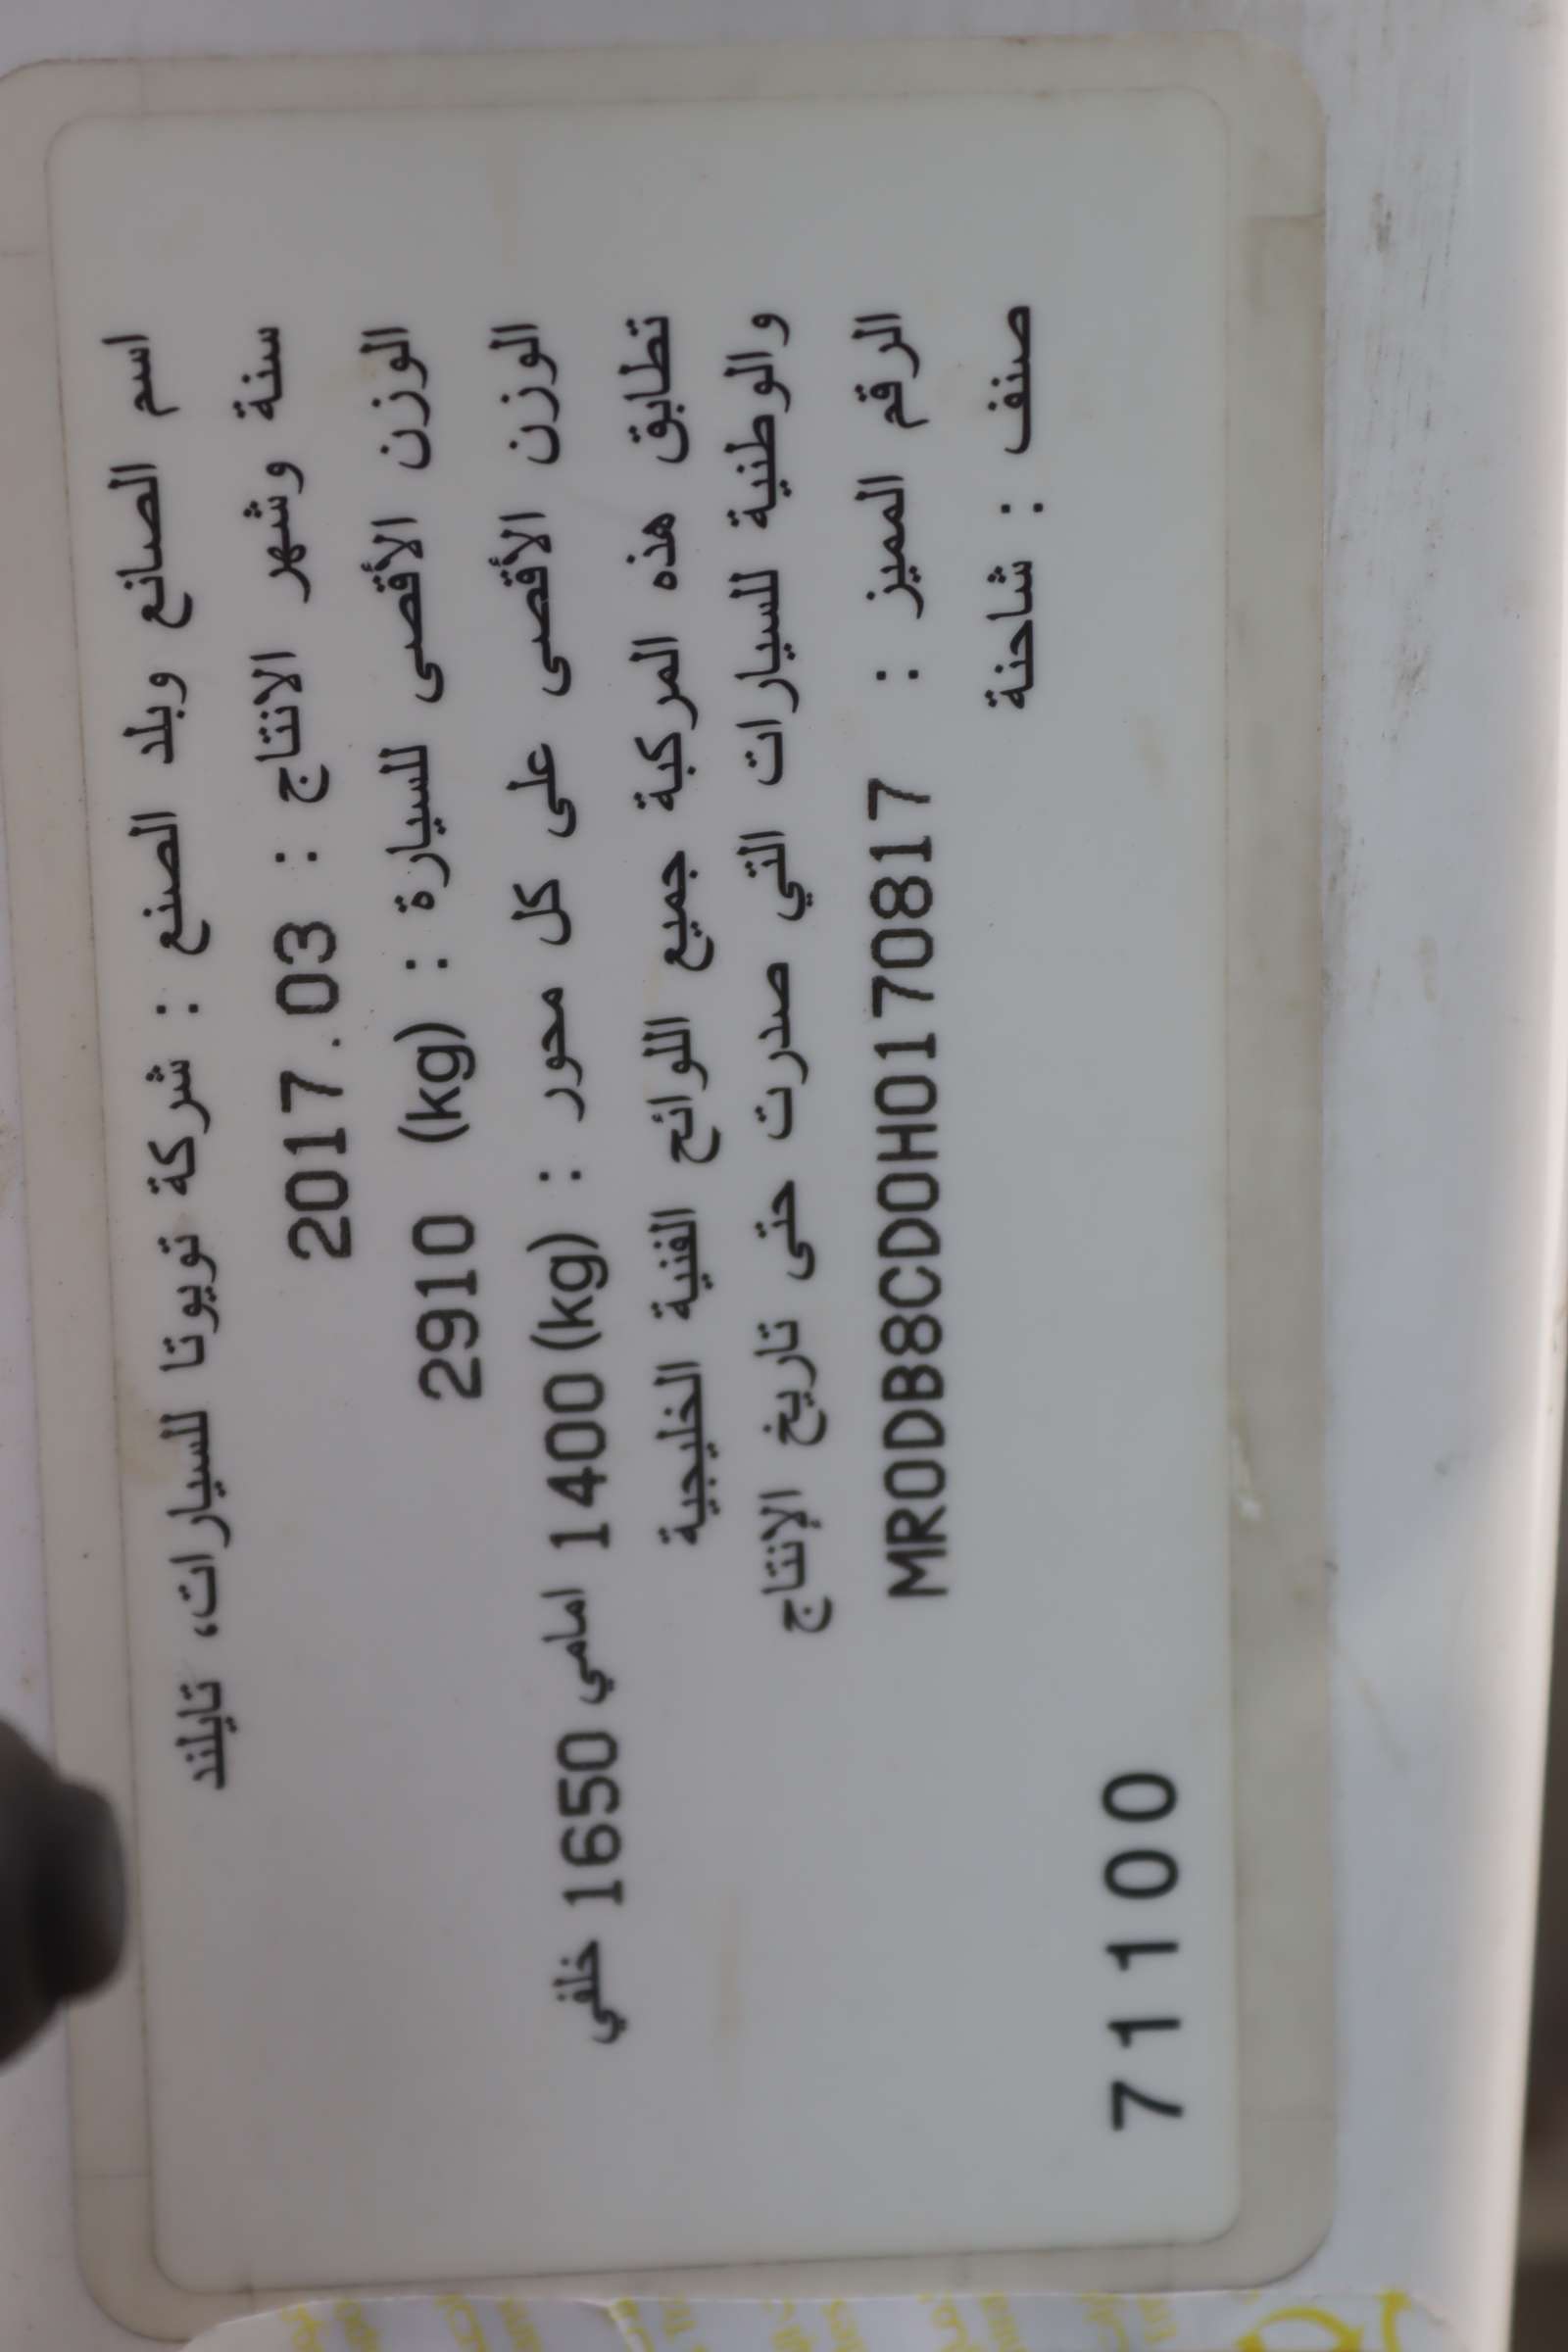 اسم الصانع وبلد الصنع : شركة تويوتا للسيارات، تايلند
سنة وشهر الانتاج : 2017.03
الوزن الأقصى للسيارة : (kg) 2910
الوزن الأقصى على كل محور : (kg) 1400 امامي 1650 خلفي
تطابق هذه المركبة جميع اللوائح الفنية الخليجية
والوطنية للسيارات التي صدرت حتى تاريخ الإنتاج
الرقم المميز : MR0DB8CD0H0170817
صنف : شاحنة
71100